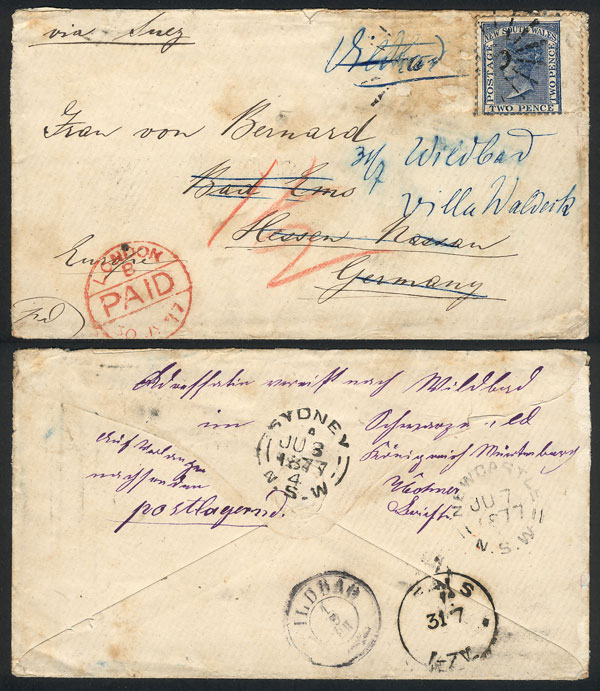 via Suez
Wildbad
POSTAGE
NEW SOUTH WALES
TWO PENCE
TWO PENCE
Frau von Bernard
31/7 Wildbad
Bad Ems
Villa Waldeck
Hessen Nassau
Europe
Germany
LONDON
PAID
77
Adressatin verreist nach Wildbad
im
Königreich Würtemberg
Auf Verlangen
nachsenden
postlagernd.
SYDNEY
A
JU 8
1877
4
N.S.W
NEWCASTLE
JU 7
1877
N.S.W
ILDBAD
EMS
31 7